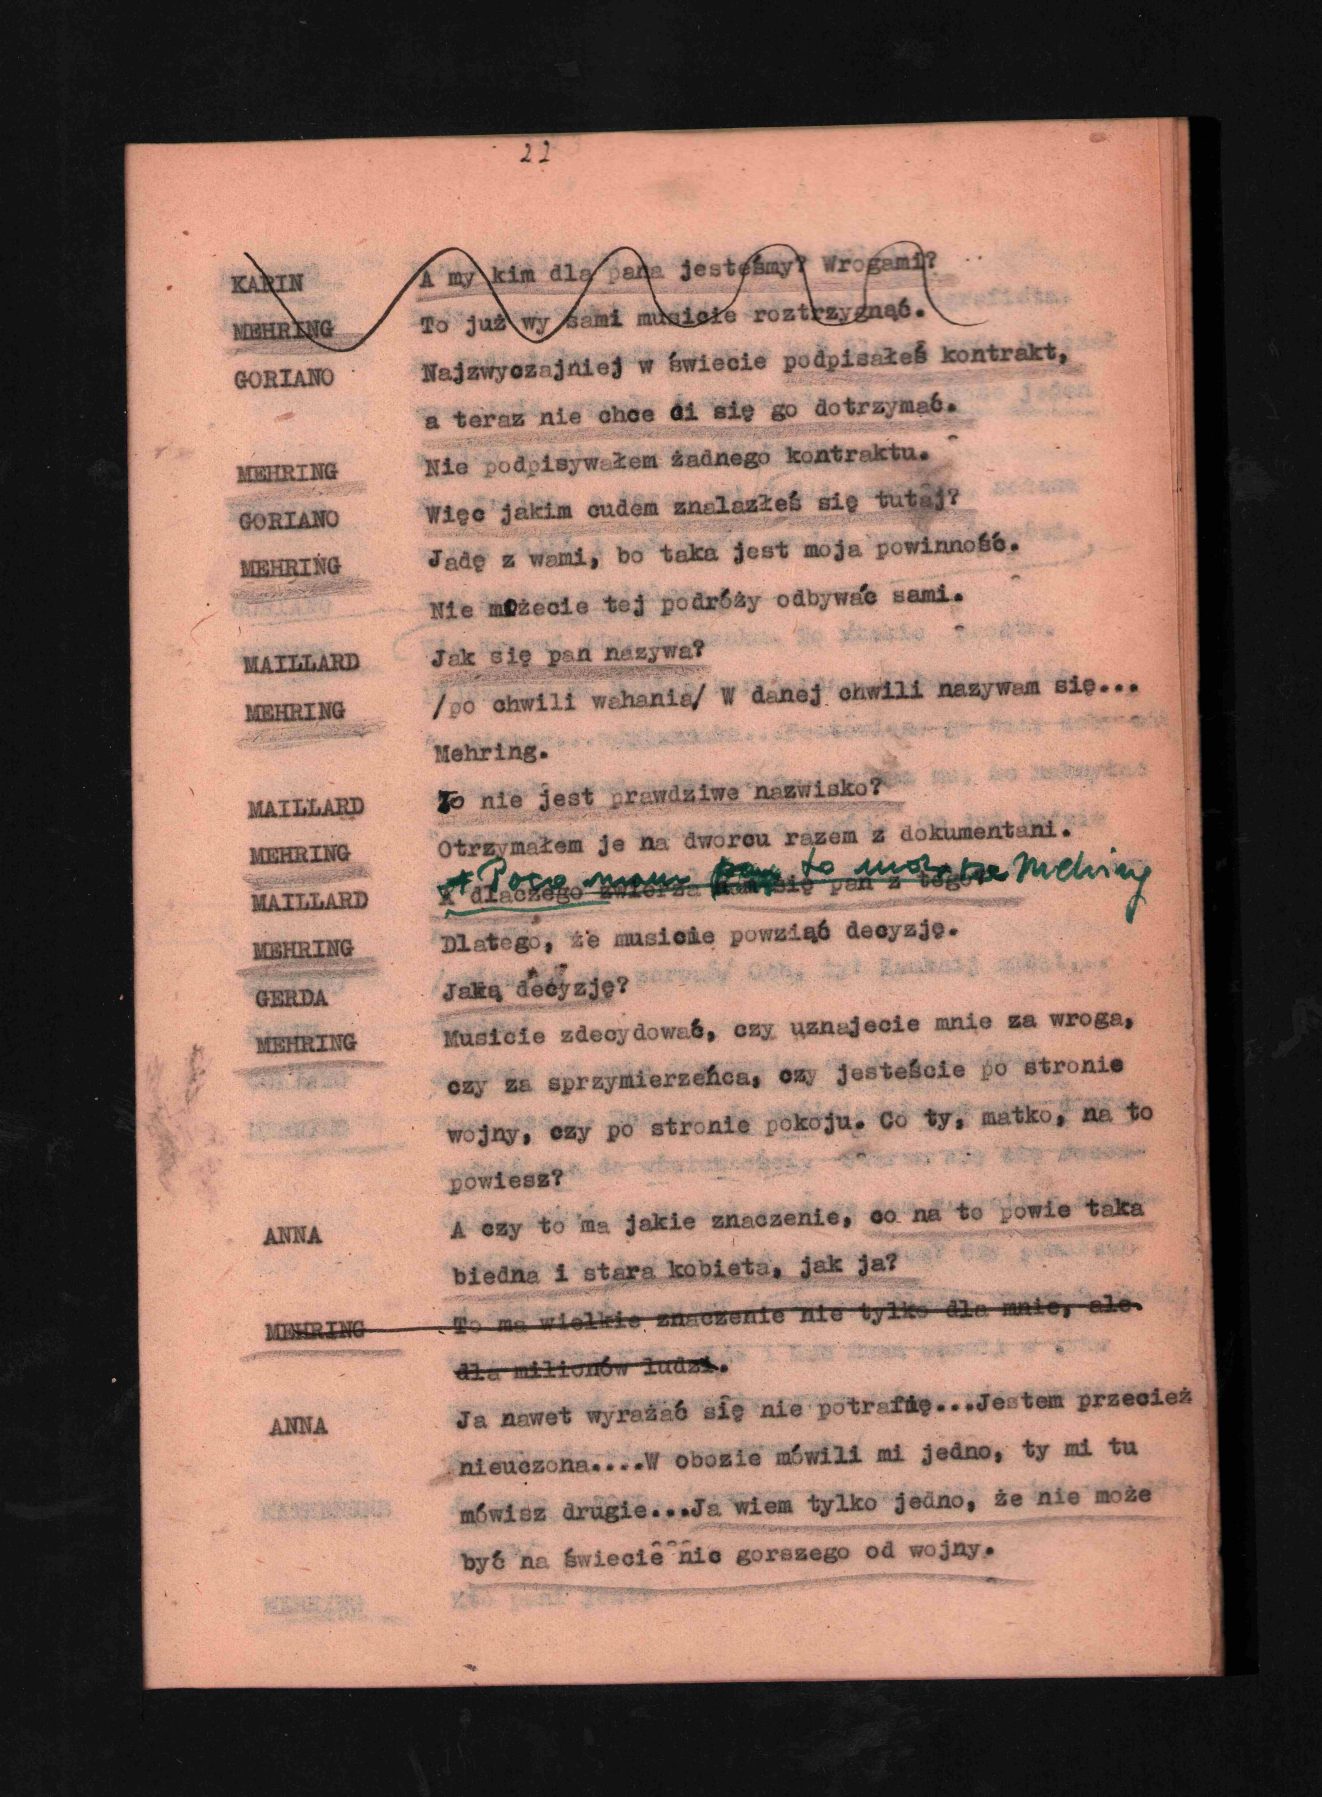 22
KARIN A my kim dla pana jesteśmy? Wrogami?
MEHRING To już wy sami musicie roztrzygnąć.
GORIANO Najzwyczajniej w świecie podpisałeś kontrakt,
a teraz nie chce ci się go dotrzymać.
MEHRING Nie podpisywałem żadnego kontraktu.
GORIANO Więc jakim cudem znalazłeś się tutaj?
MEHRING Jadę z wami, bo taka jest moja powinność.
Nie możecie tej podróży odbywać sami.
MAILLARD Jak się pan nazywa?
MEHRING /po chwili wahania/ W danej chwili nazywam się...
Mehring.
MAILLARD To nie jest prawdziwe nazwisko?
MEHRING Otrzymałem je na dworcu razem z dokumentani.
Poco nam pan to mówi Mehring
MAILLARD A dlaczego zwierza nam się pan z tego?
MEHRING Dlatego, że musicie powziąć decyzję.
GERDA Jaką decyzję?
MEHRING Musicie zdecydować, czy uznajecie mnie za wroga,
czy za sprzymierzeńca, czy jesteście po stronie
wojny, czy po stronie pokoju. Co ty, matko, na to
powiesz?
ANNA A czy to ma jakie znaczenie, co na to powie taka
biedna i stara kobieta, jak ja?
MEHRING To ma wielkie znaczenie nie tylko dla mnie, ale
dla milionów ludzi.
ANNA Ja nawet wyrażać się nie potrafię...Jestem przecież
nieuczona....W obozie mówili mi jedno, ty mi tu
mówisz drugie...Ja wiem tylko jedno, że nie może
być na świecie nic gorszego od wojny.